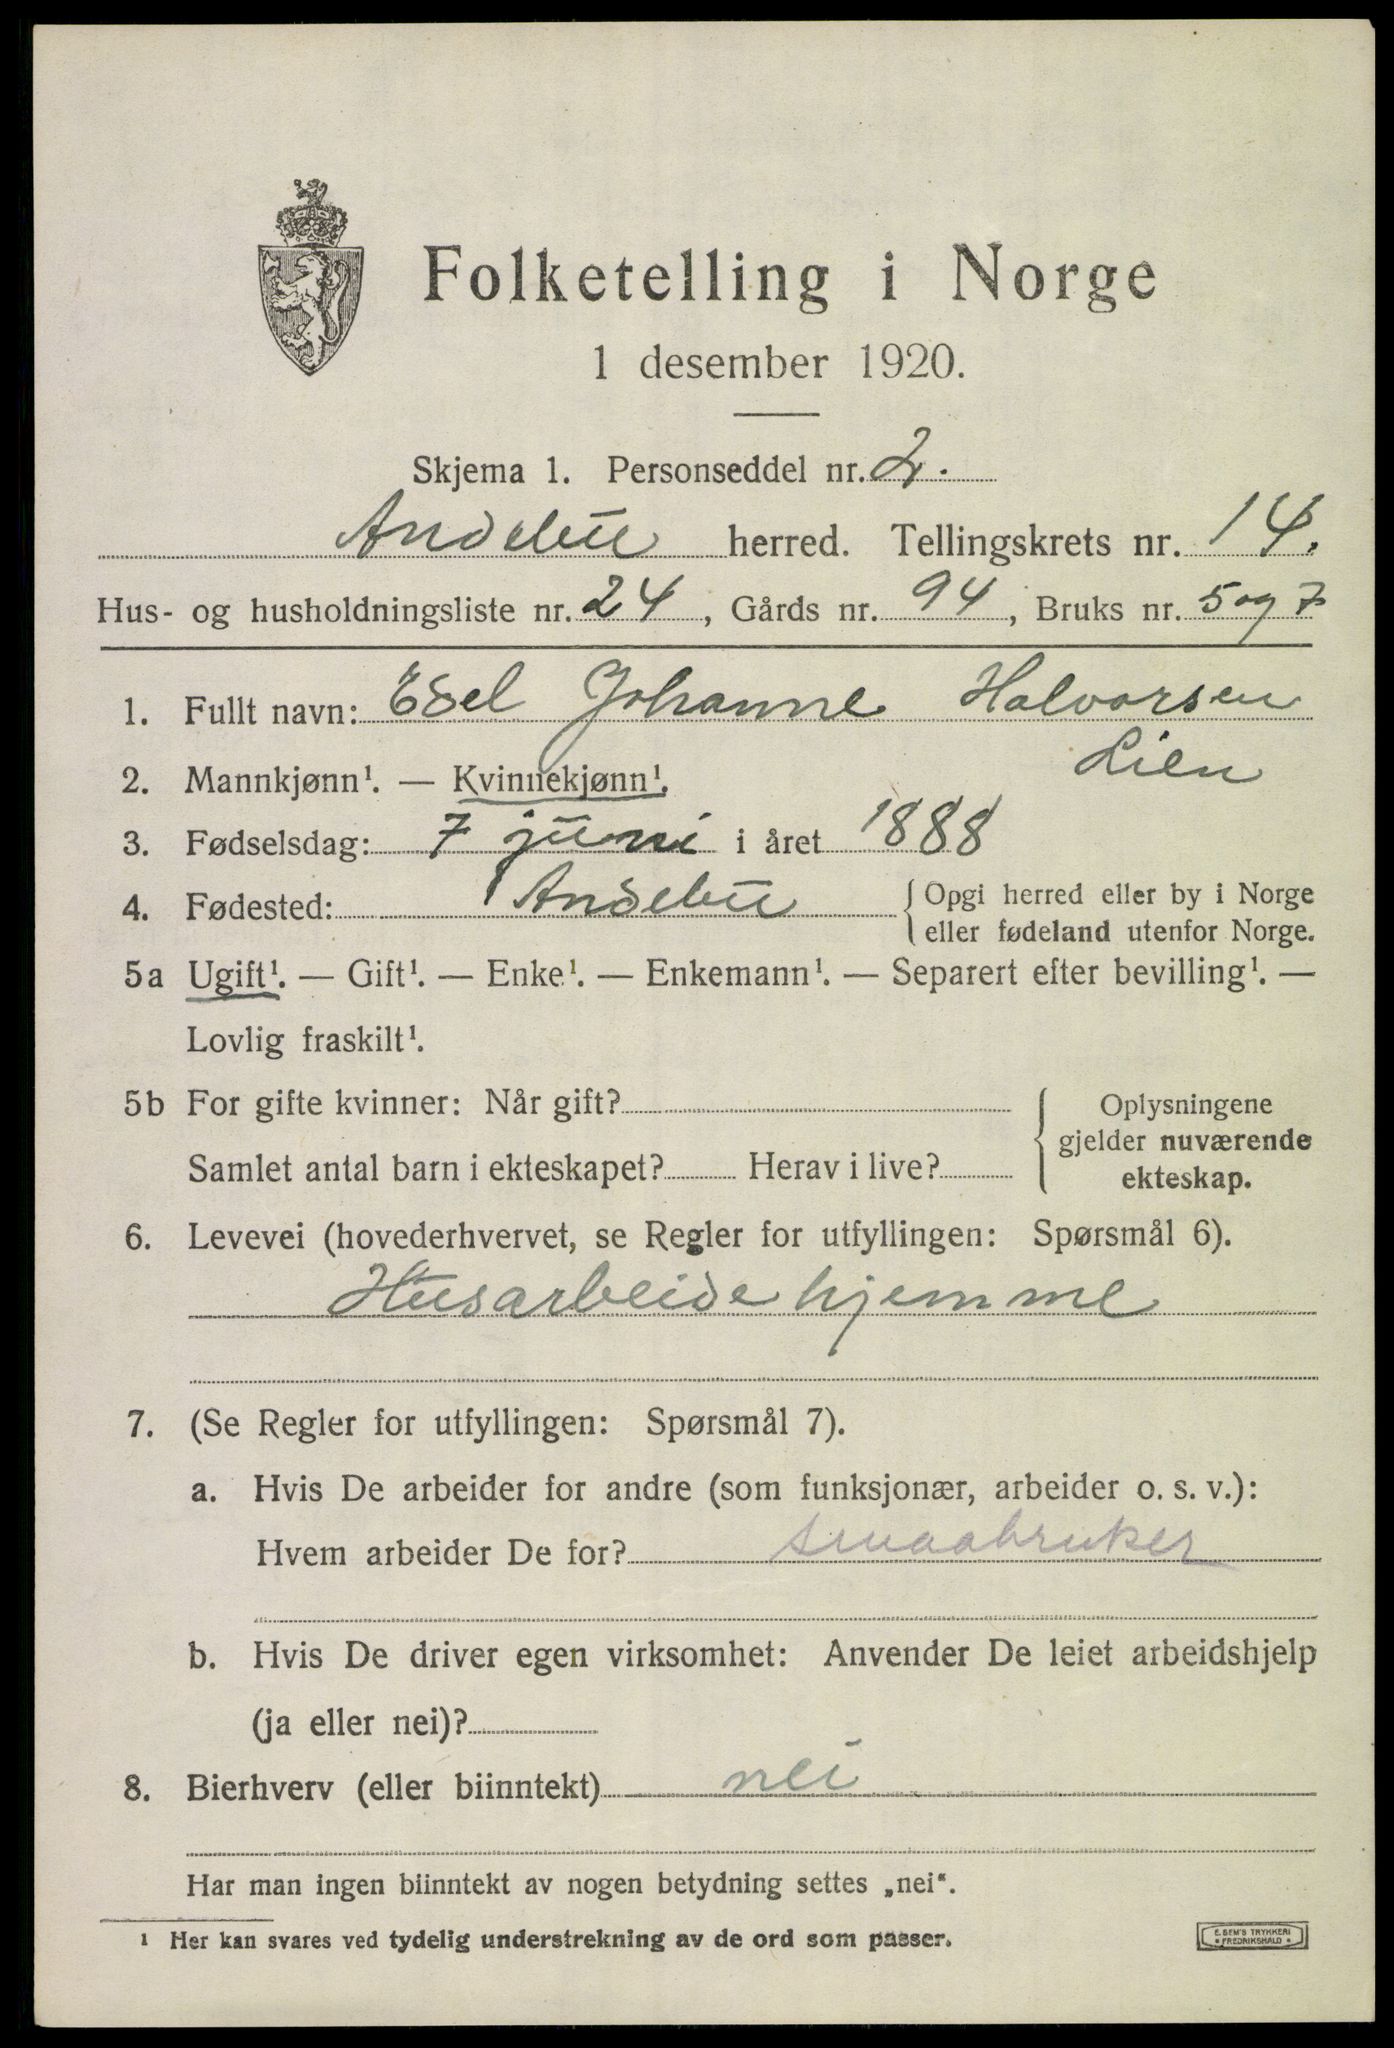 Folketelling i Norge
1 desember 1920.
Skjema 1. Personseddel nr. 2.
Andebu herred. Tellingskrets nr. 14.
Hus- og husholdningsliste nr. 24, Gårds nr. 94, Bruks nr. 5 og 7
1. Fullt navn: Edel Johanne Halvorsen
Lien
2. Mannkjønn¹. — Kvinnekjønn¹.
3. Fødselsdag: 7 juni i året 1888
4. Fødested: Andebu { Opgi herred eller by i Norge
eller fødeland utenfor Norge.
5a Ugift¹. — Gift¹. — Enke¹. — Enkemann¹. — Separert efter bevilling¹. —
Lovlig fraskilt¹.
5b For gifte kvinner: Når gift? { Oplysningene
gjelder nuværende
Samlet antal barn i ekteskapet? Herav i live?
ekteskap.
6. Levevei (hovederhvervet, se Regler for utfyllingen: Spørsmål 6).
Husarbeide hjemme
7. (Se Regler for utfyllingen: Spørsmål 7).
a. Hvis De arbeider for andre (som funksjonær, arbeider o. s. v.):
Hvem arbeider De for? smaabruker
b. Hvis De driver egen virksomhet: Anvender De leiet arbeidshjelp
(ja eller nei)?
8. Bierhverv (eller biinntekt) nei
Har man ingen biinntekt av nogen betydning settes „nei“.
¹ Her kan svares ved tydelig understrekning av de ord som passer.
E. SEM'S TRYKKERI
• FREDRIKSHALD •